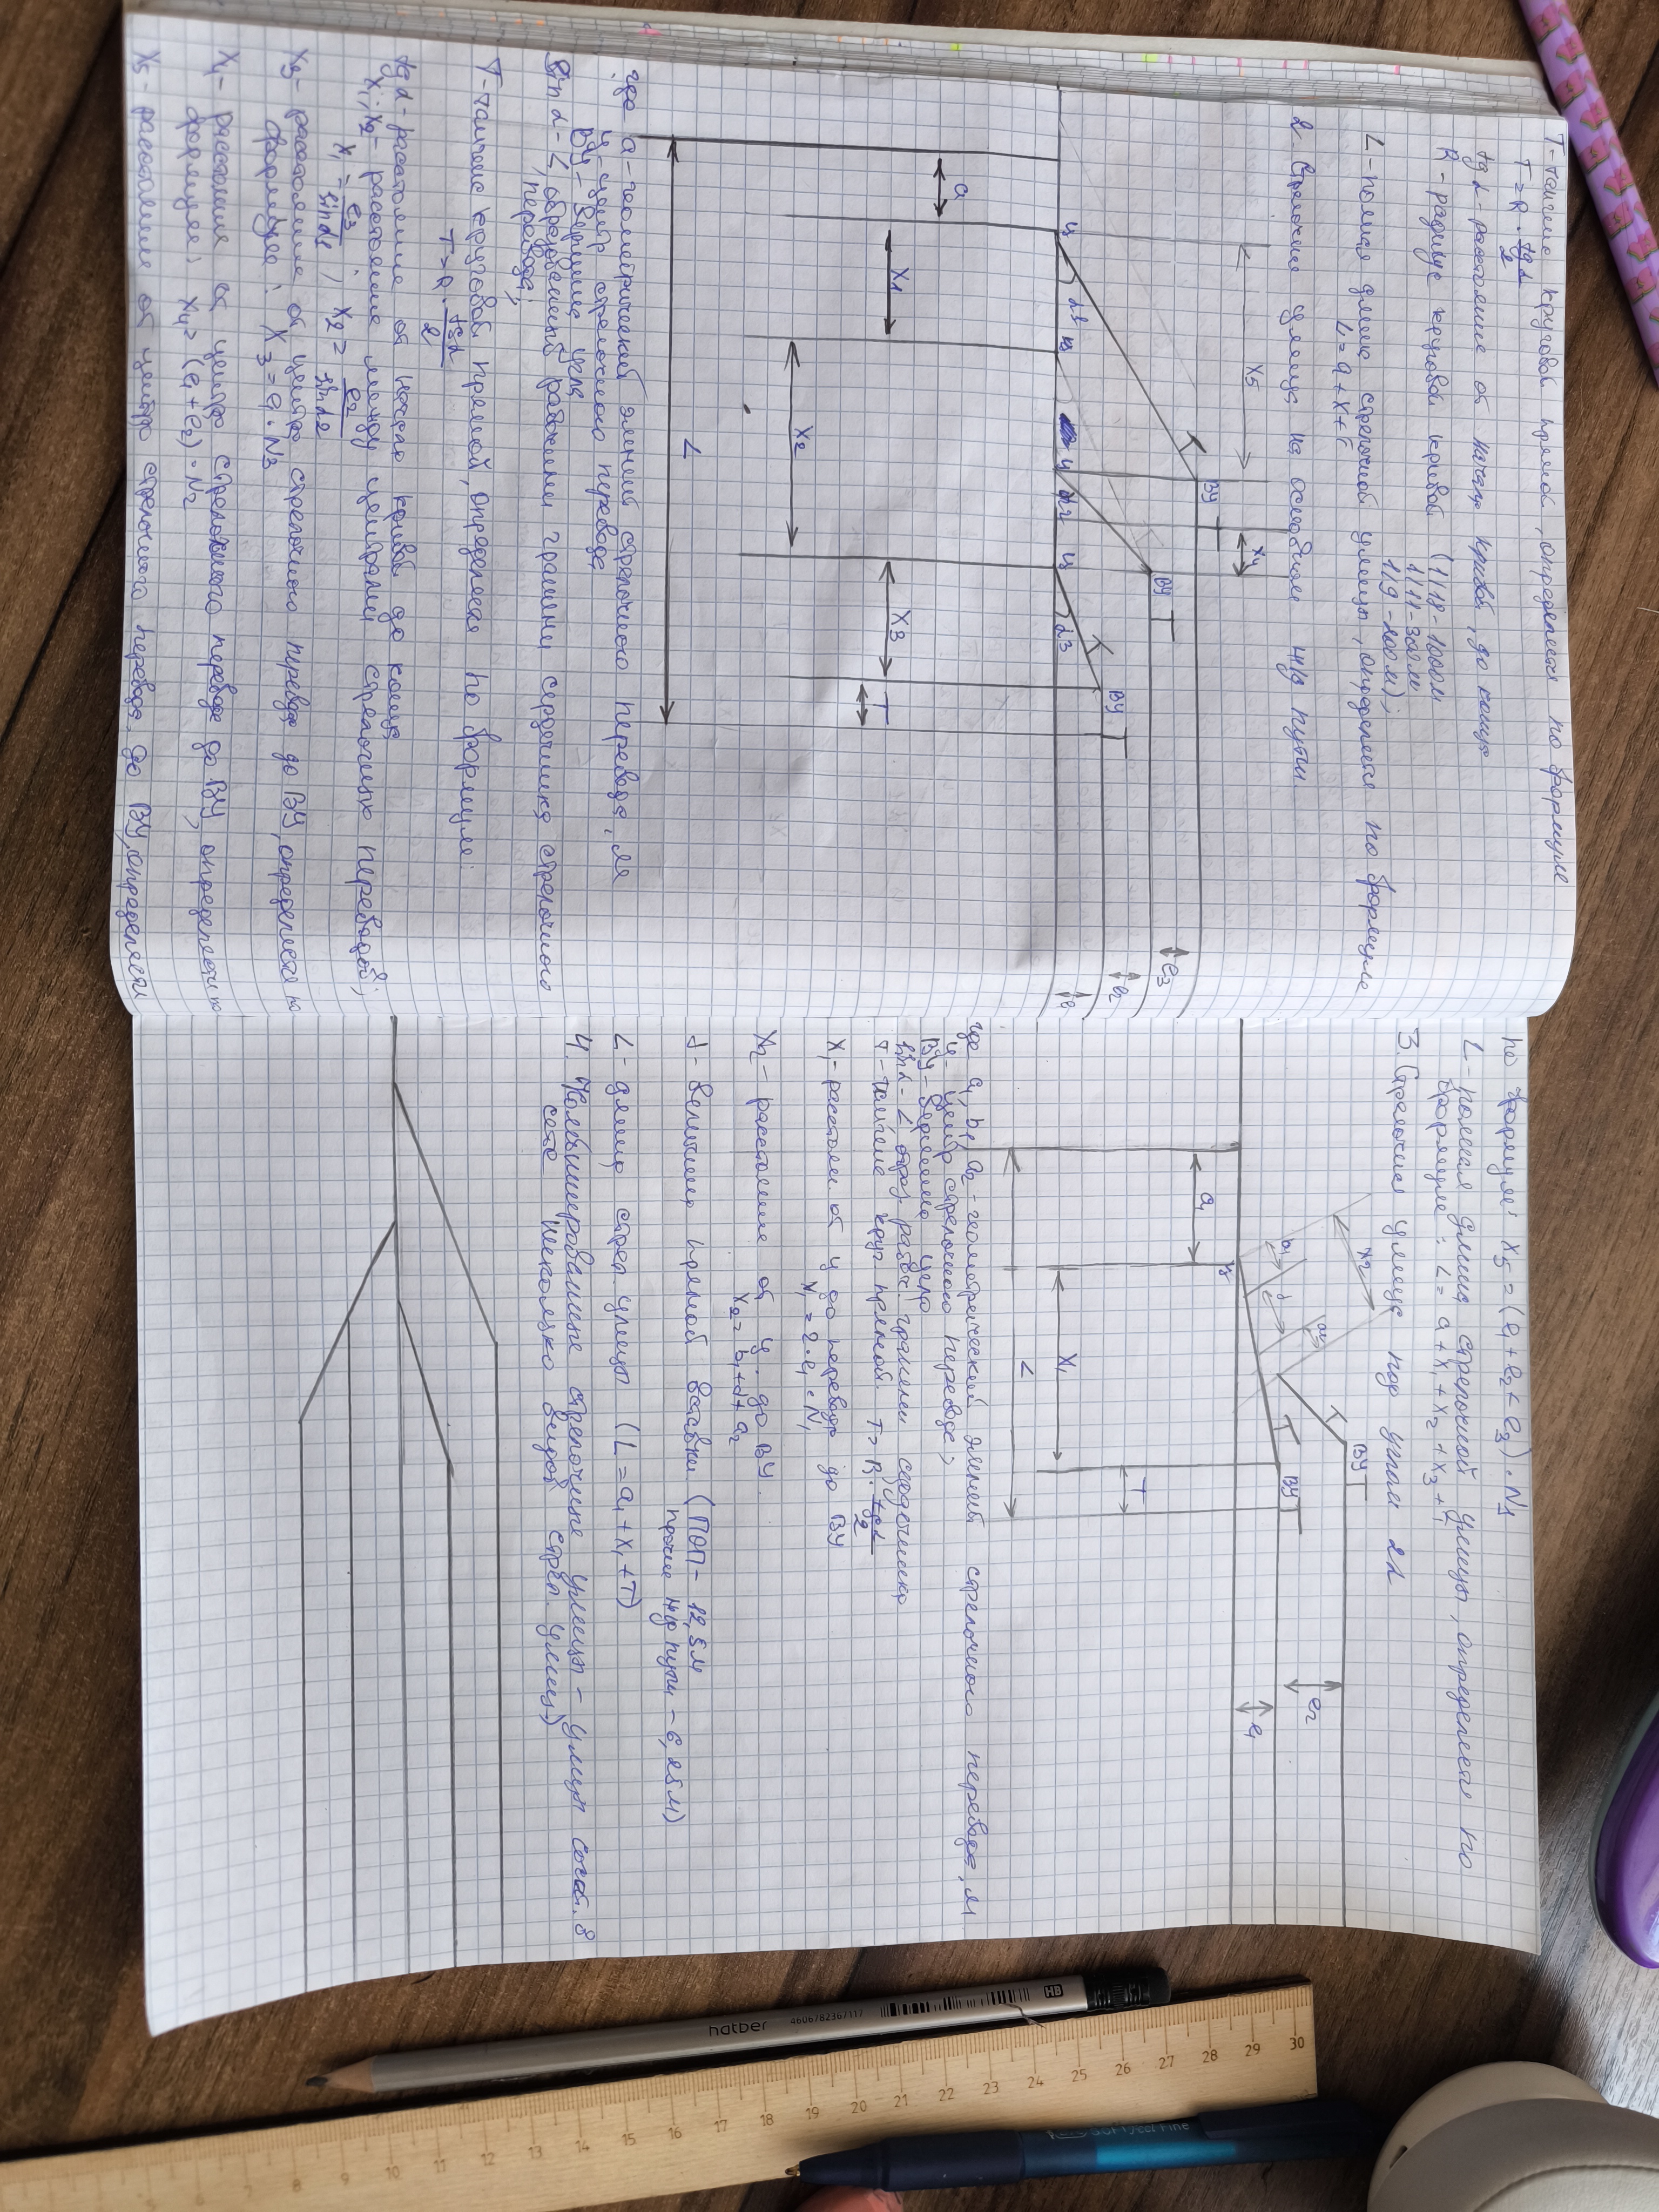 Т-тангенс круговой прямой, определяется по формуле
T = R · tgα/2
tgα - расстояние от начала кривой, до конца
R - радиус круговой кривой (1/18 - 1000м
1/11 - 300м
1/9 - 200м);
L - полная длина стрелочной улицы, определяется по формуле
L = a + x + T
2. Стрелочная улица на основном ж/д пути.
X5
X4
ВУ
ВУ
ВУ
Ц
Ц
Ц
α2
α3
a
X1
X2
X3
T
L
e3
e2
e1
где a - геометрический элемент стрелочного перевода, м
Ц - центр стрелочного перевода
ВУ - вершина угла
Sin α - ∠, образованный рабочими гранями сердечника стрелочного
перевода;
Т-тангенс круговой прямой, определяется по формуле:
T = R · tgα/2
tgα - расстояние от начала кривой до конца
X1; X2 - расстояние между центрами стрелочных переводов;
X1 = e3/sinα1; X2 = e2/sinα2
X3 - расстояние от центра стрелочного перевода до ВУ, определяется по
формуле: X3 = e1 · N3
X4 - расстояние от центра стрелочного перевода до ВУ, определяется по
формуле: X4 = (e1 + e2) · N2
X5 - расстояние от центра стрелочного перевода до ВУ, определяется
по формуле: X5 = (e1 + e2 + e3) · N1
L - полная длина стрелочной улицы, определяется по
формуле: L = a + X1 + X2 + X3 + T
3. Стрелочная улица под углом 2α
X2
b1
d
a2
ВУ
ВУ
Ц
a1
X1
T
L
e2
e1
где a1, b1, a2 - геометрический элемент стрелочного перевода, м
Ц - центр стрелочного перевода;
ВУ - вершина угла
sinα - ∠ образ. рабоч. гранями сердечника
T - тангенс круг. прямой. T = R · tgα/2
X1 - расстоян от Ц до перевода до ВУ
X1 = 2 · e1 · N1
X2 - расстояние от Ц. до ВУ.
X2 = b1 + d + a2
d - величина прямой вставки (ПОП - 12,5м
прочие ж/д пути - 6,25м)
L - длина стрел. улицы (L = a1 + X1 + T)
4. Комбинированные стрелочные улицы - улицы сочет. в
себе несколько видов стрел. улиц)
hatber
4606782367117
HB
5 6 7 8 9 10 11 12 13 14 15 16 17 18 19 20 21 22 23 24 25 26 27 28 29 30